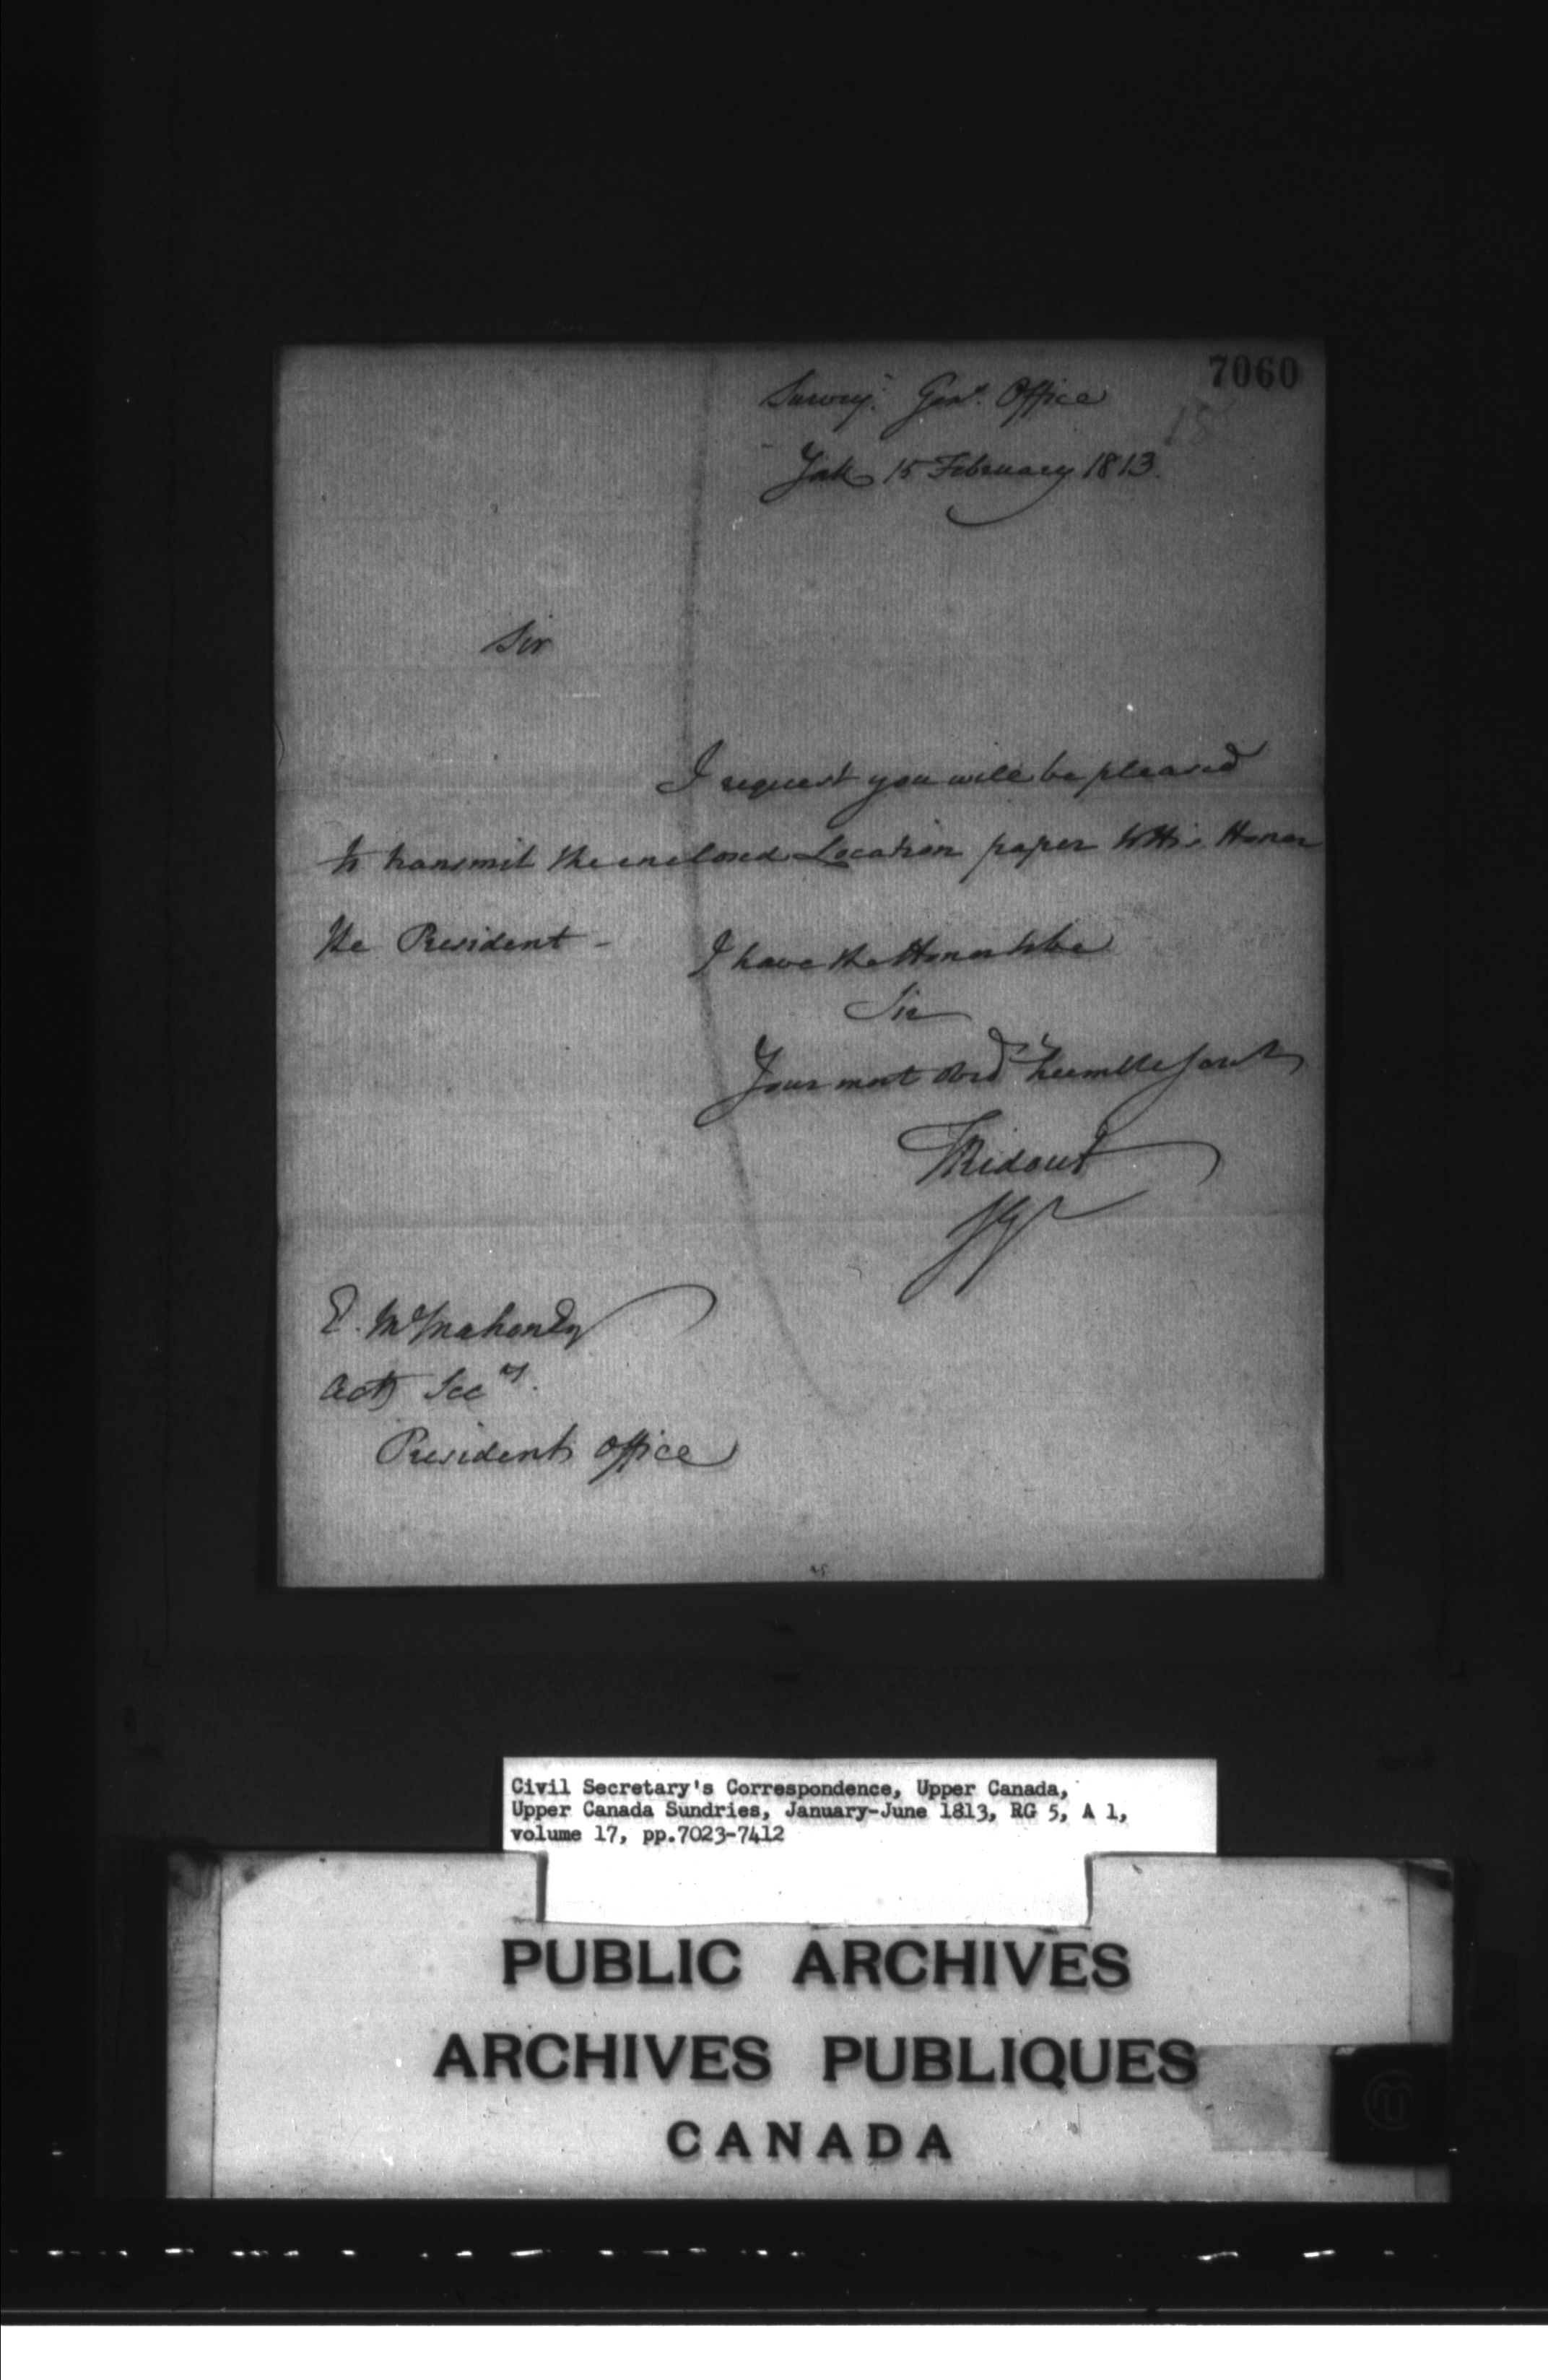 7060
Survey.r Gen.l Office
18
York 15 February 1813.
Sir
I request you will be pleased
to transmit the enclosed Location paper to His Honor
the President -
I have the Honor to be
Sir
Your most Obed.t humble Servt
TRidout
SG
E. McMahon Esq
Actg Secry.
Presidents Office
Civil Secretary's Correspondence, Upper Canada,
Upper Canada Sundries, January-June 1813, RG 5, A 1,
volume 17, pp.7023-7412
PUBLIC ARCHIVES
ARCHIVES PUBLIQUES
CANADA